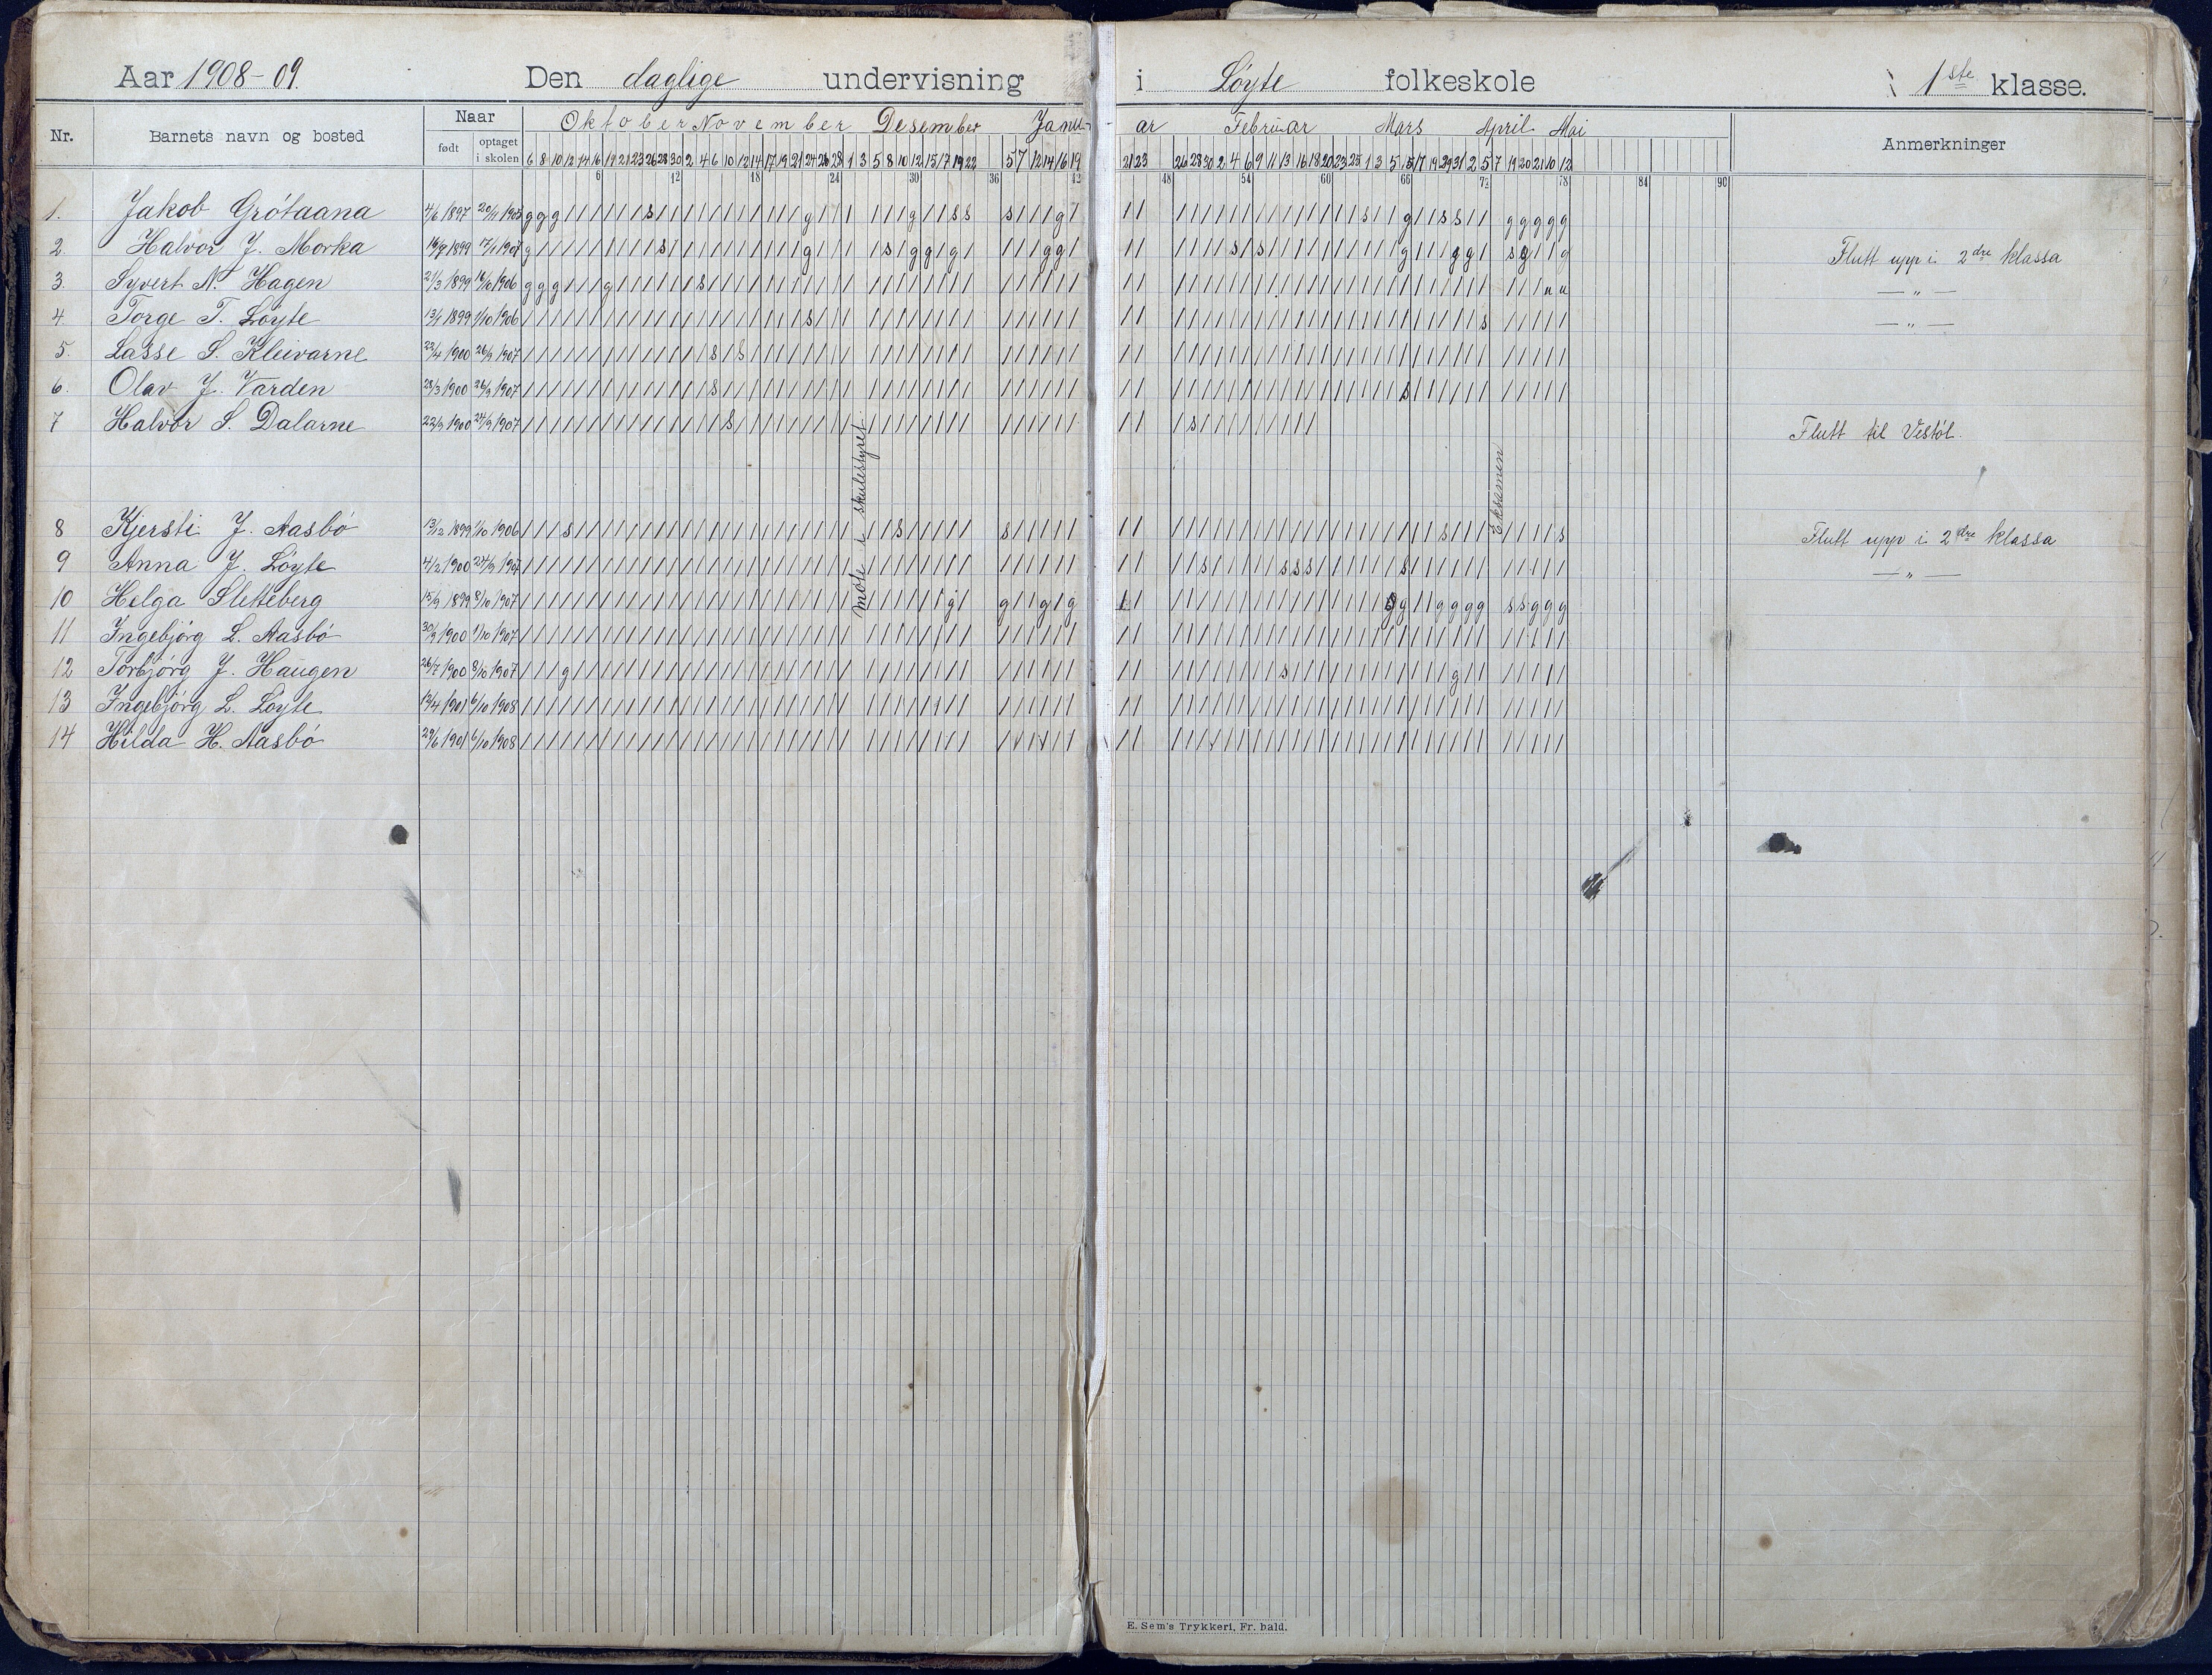 Aar 1908-09. Den daglige undervisning i Løyte folkeskole 1ste klasse.
Nr. Barnets navn og bosted Naar Oktober November Desember Janu- ar Februar Mars April Mai Anmerkninger
født optaget i skolen 6 8 10 12 14 16 19 21 23 26 28 30 2 4 6 10 12 14 17 19 21 24 26 28 1 3 5 8 10 12 15 17 19 22 5 7 12 14 16 19 21 23 26 28 30 2 4 6 9 11 13 16 18 20 23 25 1 3 5 15 17 19 29 31 2 5 7 19 20 21 10 12
6 12 18 24 30 36 42 48 54 60 66 72 78 84 90
1. Jakob Grótaana 4/6 1897 20/11 1905
2. Halvor J. Morka 16/9 1899 17/1 1907 Flutt upp i 2dre klassa
3. Syvert N. Hagen 21/3 1899 16/10 1906 — „ —
4. Torge T. Løyte 13/1 1899 1/10 1906 — „ —
5. Lasse S. Kleivarne 23/4 1900 26/9 1907
6. Olav J. Varden 28/3 1900 26/9 1907
7 Halvor S. Dalarne 22/9 1900 24/9 1907 Flutt til Vestól.
Møte i skulestyret
Eksamen
8 Kjersti J. Aasbó 13/12 1899 1/10 1906 Flutt upp i 2dre klassa
9 Anna J. Løyte 4/2 1900 24/9 1907 — „ —
10 Helga Sletteberg 15/9 1899 8/10 1907
11 Ingebjórg L. Aasbó 30/3 1900 1/10 1907
12 Torbjórg J. Haugen 26/7 1900 8/10 1907
13 Ingebjórg L. Løyte 13/4 1901 6/10 1908
14 Hilda H. Aasbó 29/6 1901 6/10 1908
E. Sem's Trykkeri, Fr. hald.